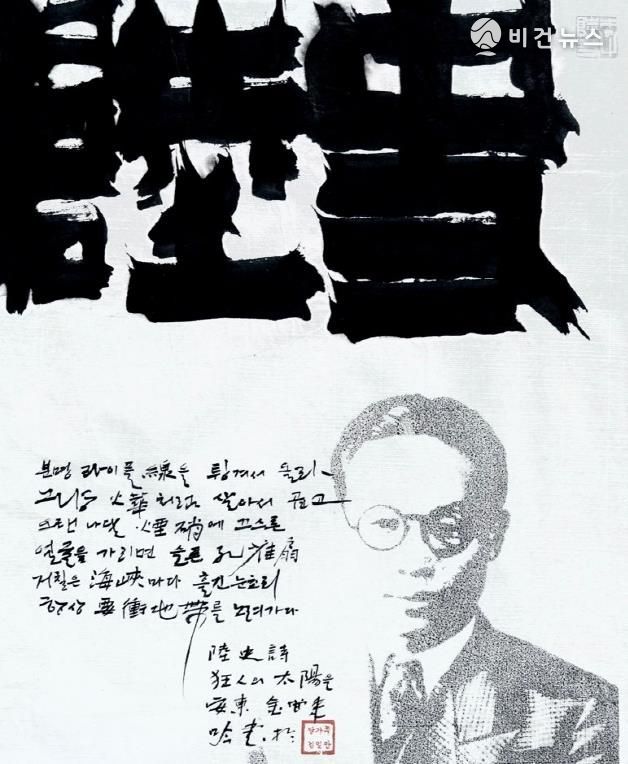 비건뉴스
분명 라이플 線을 튕겨서 올라
그냥 火華처럼 살아서 곱고
오랜 나달 煙硝에 끄스른
얼굴을 가리면 슬픈 孔雀扇
거칠은 海峽마다 흘긴 눈초리
항상 要衝地帶를 노려가다
陸史 詩
狂人의 太陽을
安東